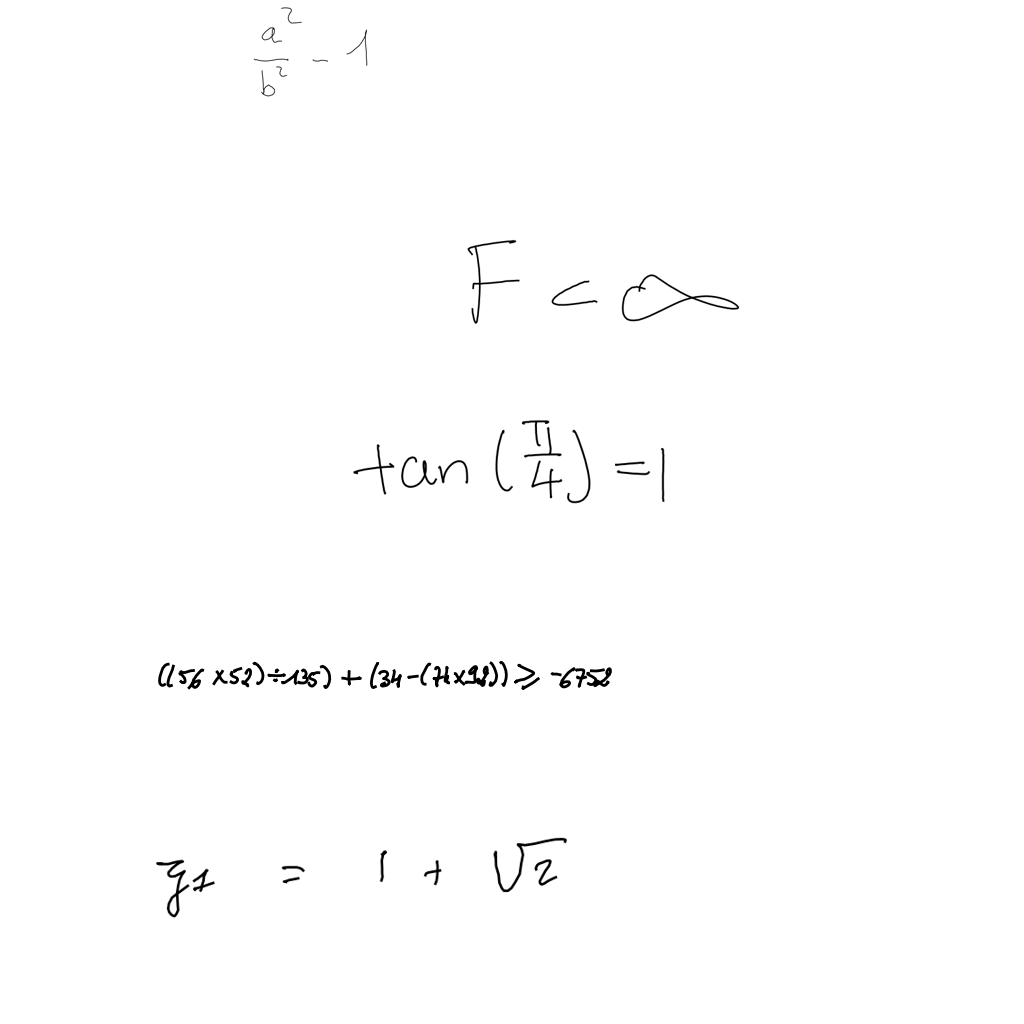 \frac{a^2}{b^2} - 1
F < \infty
\tan\left(\frac{\pi}{4}\right) = 1
((56 \times 52) \div 135) + (34 - (74 \times 92)) \geq -6752
z_1 = 1 + \sqrt{2}